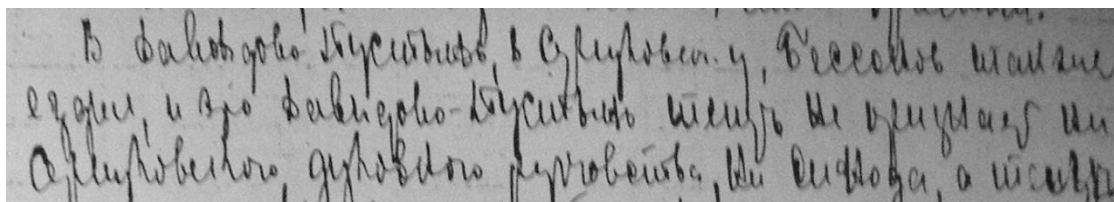 В Давыдово-Пустынь, в Серпуховск. у, Бессонов также
ездил, и это Давыдово-Пустынь теперь не признает ни
Серпуховского, духовного руководства, ни Синода, а только